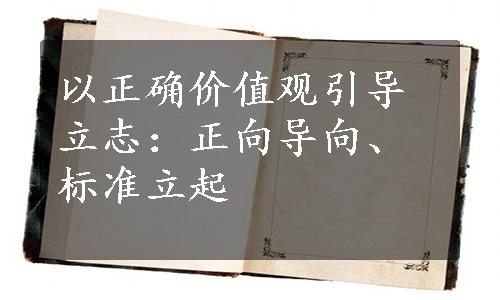 以正确价值观引导
立志：正向导向、
标准立起